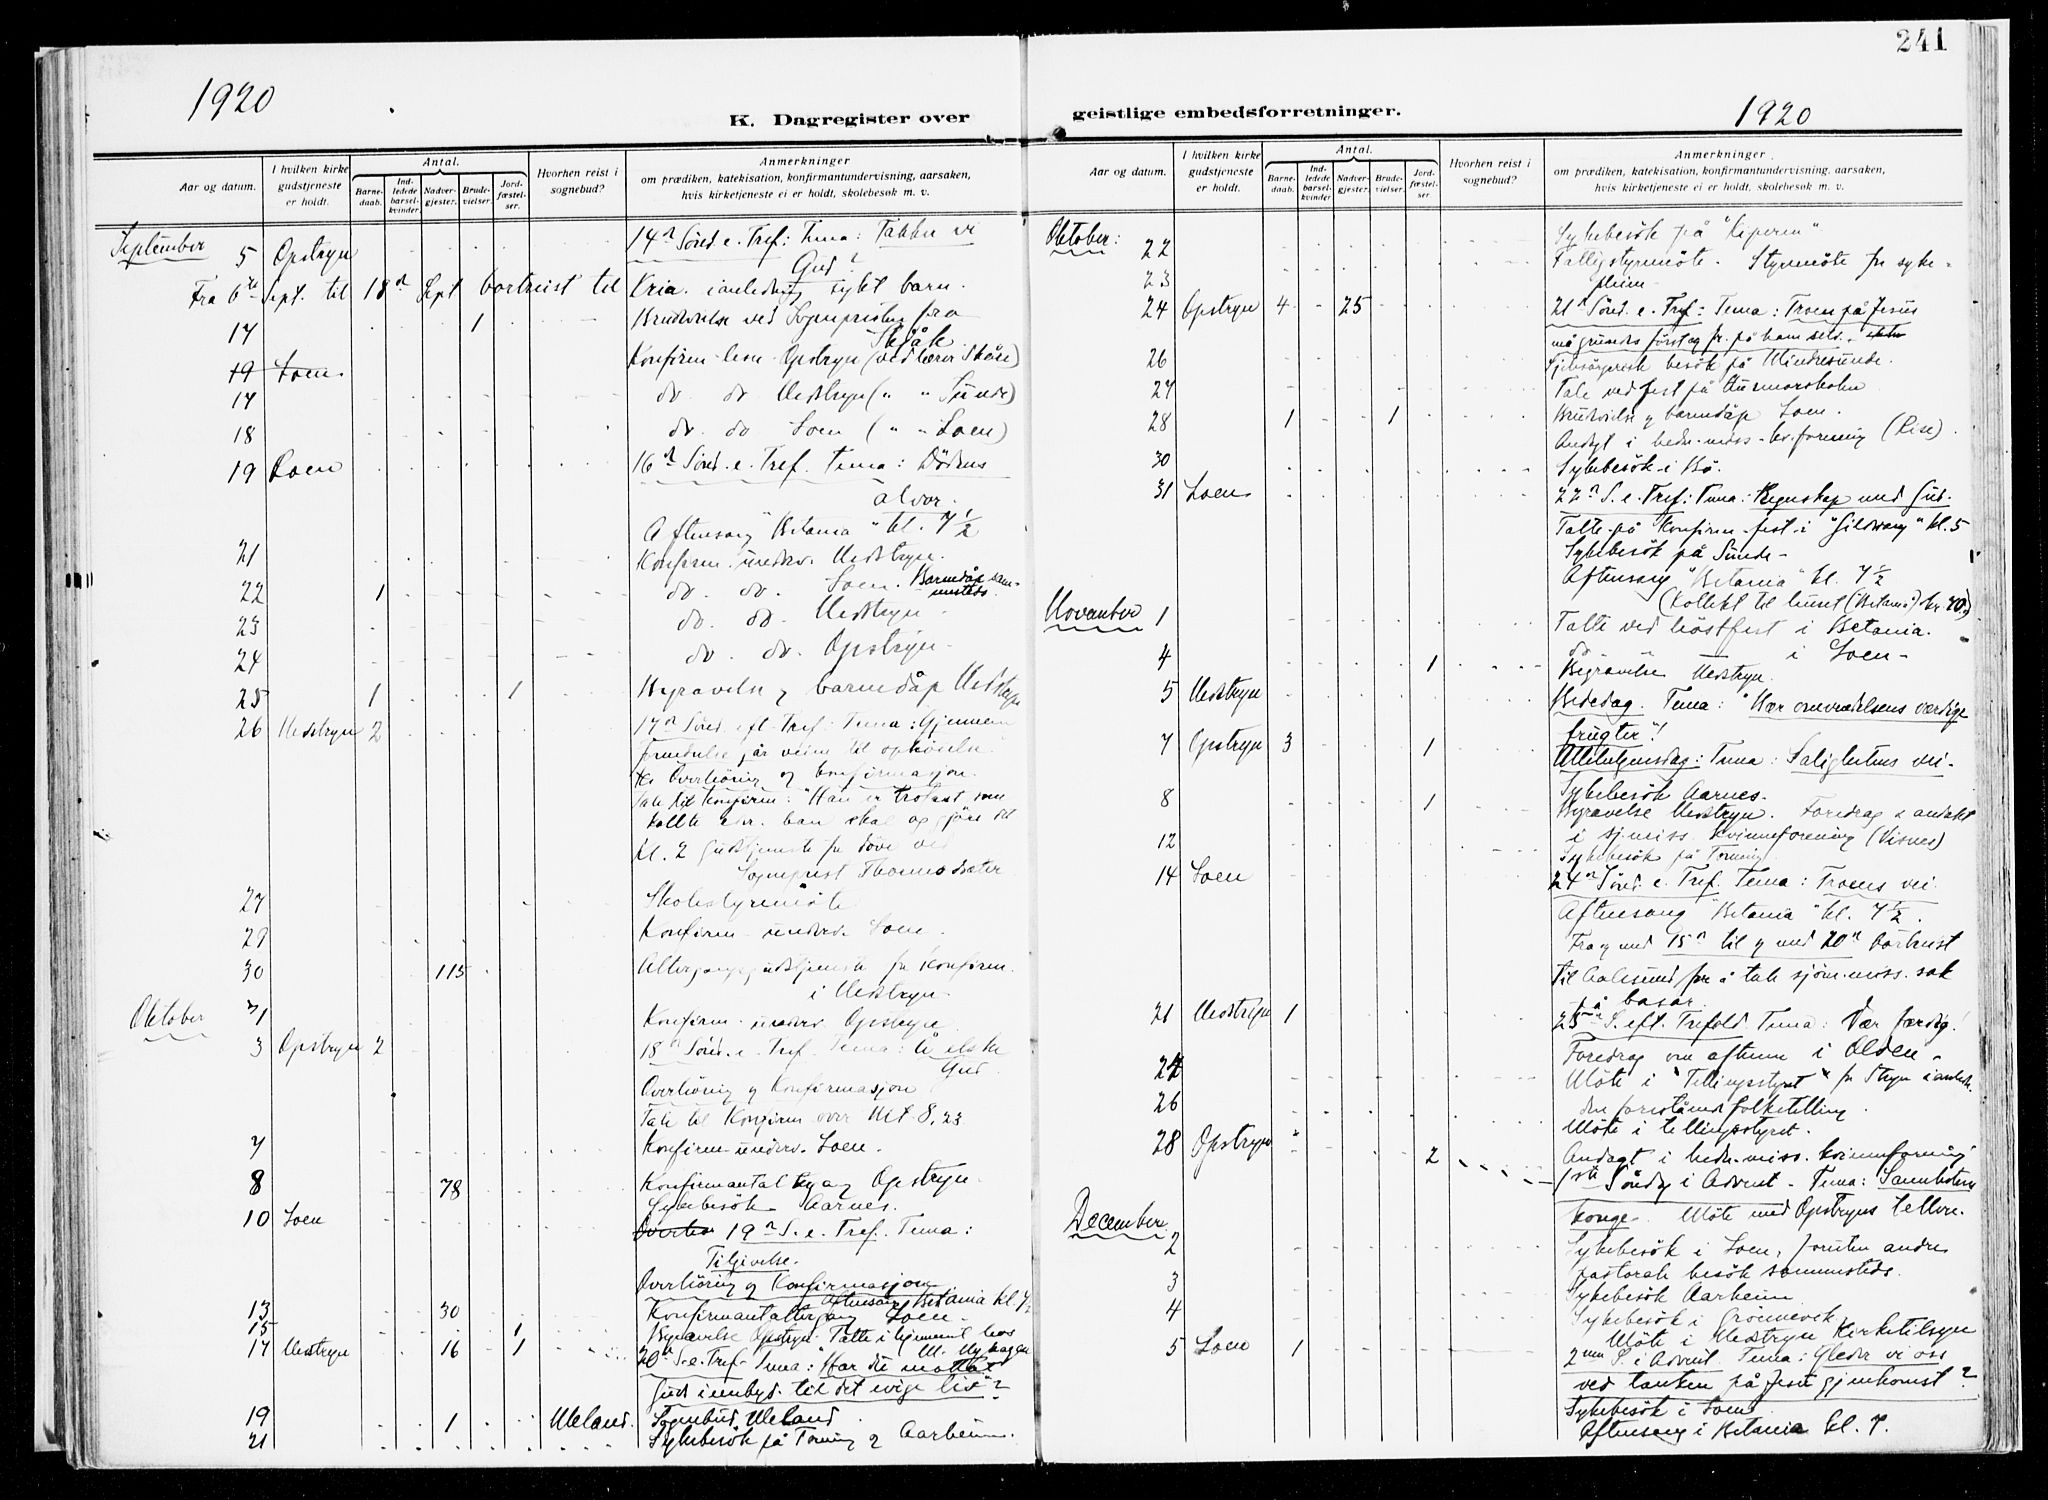 241
1920
K. Dagregister over
geistlige embedsforretninger.
1920
Aar og datum.
I hvilken kirke gudstjeneste er holdt.
Antal.
Barnedaab.
Indledede barselkvinder.
Nadvergjester.
Brudevielser.
Jordfæstelser.
Hvorhen reist i sognebud?
Anmerkninger
om prædiken, katekisation, konfirmantundervisning, aarsaken,
hvis kirketjeneste ei er holdt, skolebesøk m. v.
September 5 Opstryn 14de Sönd. e. Tref: Tema: Takker vi
Gud?
Fra 6te Sept. til 18de Sept bortreist til Kria. i anledning sykt barn.
17 1 Brudvielse ved Sognepresten fra
Skjåk
19 Loen Konfirm-lesn Opstryn (ved lærer Skåre)
17 do. do Nedstryn ( " " Sunde)
18 do. do Loen ( " " Loen)
19 Loen 16de Sönd. e. Tref. Tema: Dödens
alvor.
Aftensang "Betania" kl. 7 1/2
21 Konfirm. underv. Nedstryn.
22 1 do. do. Loen. Barnedåp sammesteds.
23 do. do. Nedstryn
24 do. do. Opstryn
25 1 1 Begravelse og barnedåp Nedstryn
26 Nedstryn 2 17de Sönd. eft. Tref: Tema: Gjennem
fornedrelse går veien til ophöielse
Overhöring og konfirmasjon.
Tale til Konfirm: "Han er trofast som
kaldte eder. han skal og gjöre det
Kl. 2 Gudstjeneste for döve ved
Sogneprest
27 Skolestyremöte
29 Konfirm. underv. Loen.
30 115 Altergangsgudstjeneste for Konfirm.
i Nedstryn.
Oktober 1 Konfirm. underv. Opstryn
3 Opstryn 2 18de Sönd. e. Tref. Tema: Å elske
Gud.
Overhöring og Konfirmasjon
Tale til Konfirm over Mt 8,23
7 Konfirm-underv. Loen.
8 78 Konfirmantaltergang Opstryn.
Sykebesök Aarnes.
10 Loen 19de S. e. Tref. Tema:
Tilgivelse.
Overhöring og Konfirmasjon
Aftensang Betania kl. 7 1/2
13 30 Konfirmantaltergang Loen.
15 1 Begravelse Opstryn. Talte i hjemmet hos
17 Nedstryn 16 1 20de S. e. Tref. Tema: "Har du mottat
Guds innbyd. til det evige liv"?
19 1 Meland. Sognebud Meland
21 Sykebesök på Tonning og Aarheim.
Aar og datum.
I hvilken kirke gudstjeneste er holdt.
Antal.
Barnedaab.
Indledede barselkvinder
Nadvergjester.
Brudevielser.
Jordfæstelser
Hvorhen reist i sognebud?
Anmerkninger.
om prædiken, katekisation, konfirmantundervisning, aarsaken,
hvis kirketjeneste ei er holdt, skolebesøk m. v.
Oktober: 22 Sykebesök på
23 Fattigstyremöte. Styremöte for sykepleien.
24 Opstryn 4 25 21de Sönd. e. Tref: Tema: Troen på Jesus
må grundes först og fr. på ham selv.
26 Sjelesörgerisk besök på Mindresunde.
27 Tale ved fest på
28 1 1 Brudvielse og barnedåp Loen.
Andagt i hedn-miss-kv.forening (Rise).
30 Sykebesök i Bö.
31 Loen 22de S. e. Tref: Tema: Regnskap med Gud.
Talte på Konfirm-fest i "Gildevang" kl. 5
Sykebesök på Sunde
Aftensang "Betania" kl. 7 1/2
(Kollekt til huset (Betania) kr. 70.)
November 1 Talte ved höstfest i Betania.
do i Loen
4 1 Begravelse Nedstryn.
5 Nedstryn Bededag. Tema: "Bær omvendelsens værdige
frugter"!
7 Opstryn 3 1 Allehelgensdag: Tema: Salighetens vei.
Sykebesök Aarnes.
8 1 Begravelse Nedstryn. Foredrag & andakt
i sjömiss. kvinneforening (Visnes)
12 Sykebesök på Tonning.
14 Loen 24de Sönd. e. Tref. Tema: Troens vei.
Aftensang "Betania" kl. 7 1/2.
Fra og med 15de til og med 20de bortreist
til Aalesund for å tale sjöm.miss. sak
på basar.
21 Nedstryn 1 25de S. eft. Trefold. Tema: Vær færdig!
Foredrag om aftenen i Olden.
22 Möte i "Tellingsstyret" for Stryn i anledn.
den forestående folketelling.
26 Möte i tellingsstyret.
28 Opstryn " 2 Andagt i hedn.miss. kvinneforening
1ste Söndag i Advent. Tema: Sannhetens
konge. Möte med Opstryns tellere.
December 2 Sykebesök i Loen, foruten andre
pastorale besök sammesteds.
3 Sykebesök Aarheim
4 Sykebesök i Grönnevik
Möte i Nedstryn Kirketilsyn
5 Loen 1 2nen S. i Advent. Tema: Gleder vi oss
ved tanken på Jesu gjenkomst?
Sykebesök i Loen
Aftensang i Betania kl. 7.